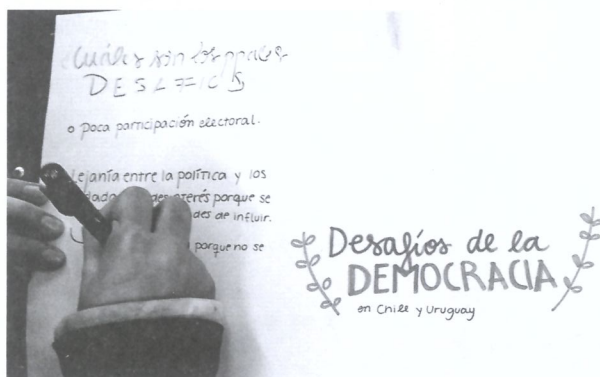 ¿Cuáles son los ppales
DESAFIOS
o poca participación electoral.
Lejanía entre la política y los
interés porque se
des de influir.
porque no se
Desafíos de la
DEMOCRACIA
en Chile y Uruguay